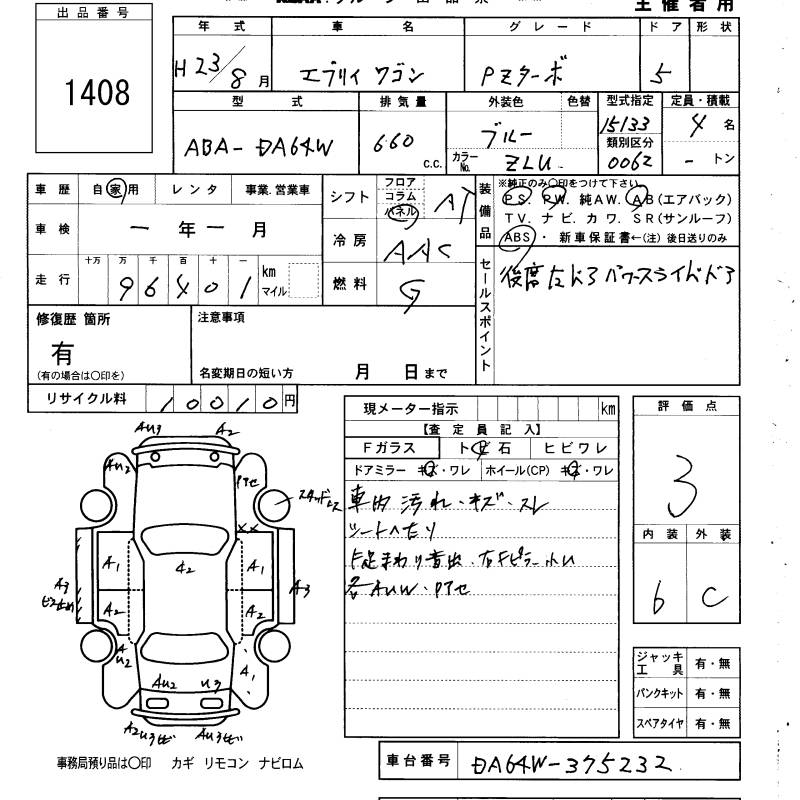 出品番号
1408
主催者用
年式 車名 グレード ドア 形状
H23/8月 エブリイ ワゴン PZターボ 5
型式 排気量 外装色 色替 型式指定 定員・積載
ABA-DA64W 660 c.c. ブルー 15133 4名
類別区分
カラーNo. ZLU 0062 -トン
車歴 自家用 レンタ 事業.営業車
シフト フロア コラム パネル AT
装備品 ※純正のみ〇印をつけて下さい
PS. PW. 純AW. AB(エアバック)
TV. ナビ. カワ. SR(サンルーフ)
ABS・ 新車保証書←(注) 後日送りのみ
車検 一年一月
冷房 AAC
走行 十万 万 千 百 十 一
96401 km マイル
燃料 G
セールスポイント
修復歴 箇所
有
(有の場合は〇印を)
注意事項
名変期日の短い方 月 日まで
リサイクル料 10010円
現メーター指示 km
【査定員記入】
Fガラス トビ石 ヒビワレ
ドアミラー キズ・ワレ ホイール(CP) キズ・ワレ
車内 汚れ・キズ・スレ
シートヘたり
各AUW・PTセ
評価点
3
内装 外装
6 C
AU3 A2
AU2 PTセ
××
A1 A2 A1
A3 A2 A2 A3
AU2 A1
AU2 U3
A2U3ヒビ AU3ヒビ
ジャッキ工具 有・無
パンクキット 有・無
スペアタイヤ 有・無
事務局預り品は〇印 カギ リモコン ナビロム
車台番号 DA64W-375232